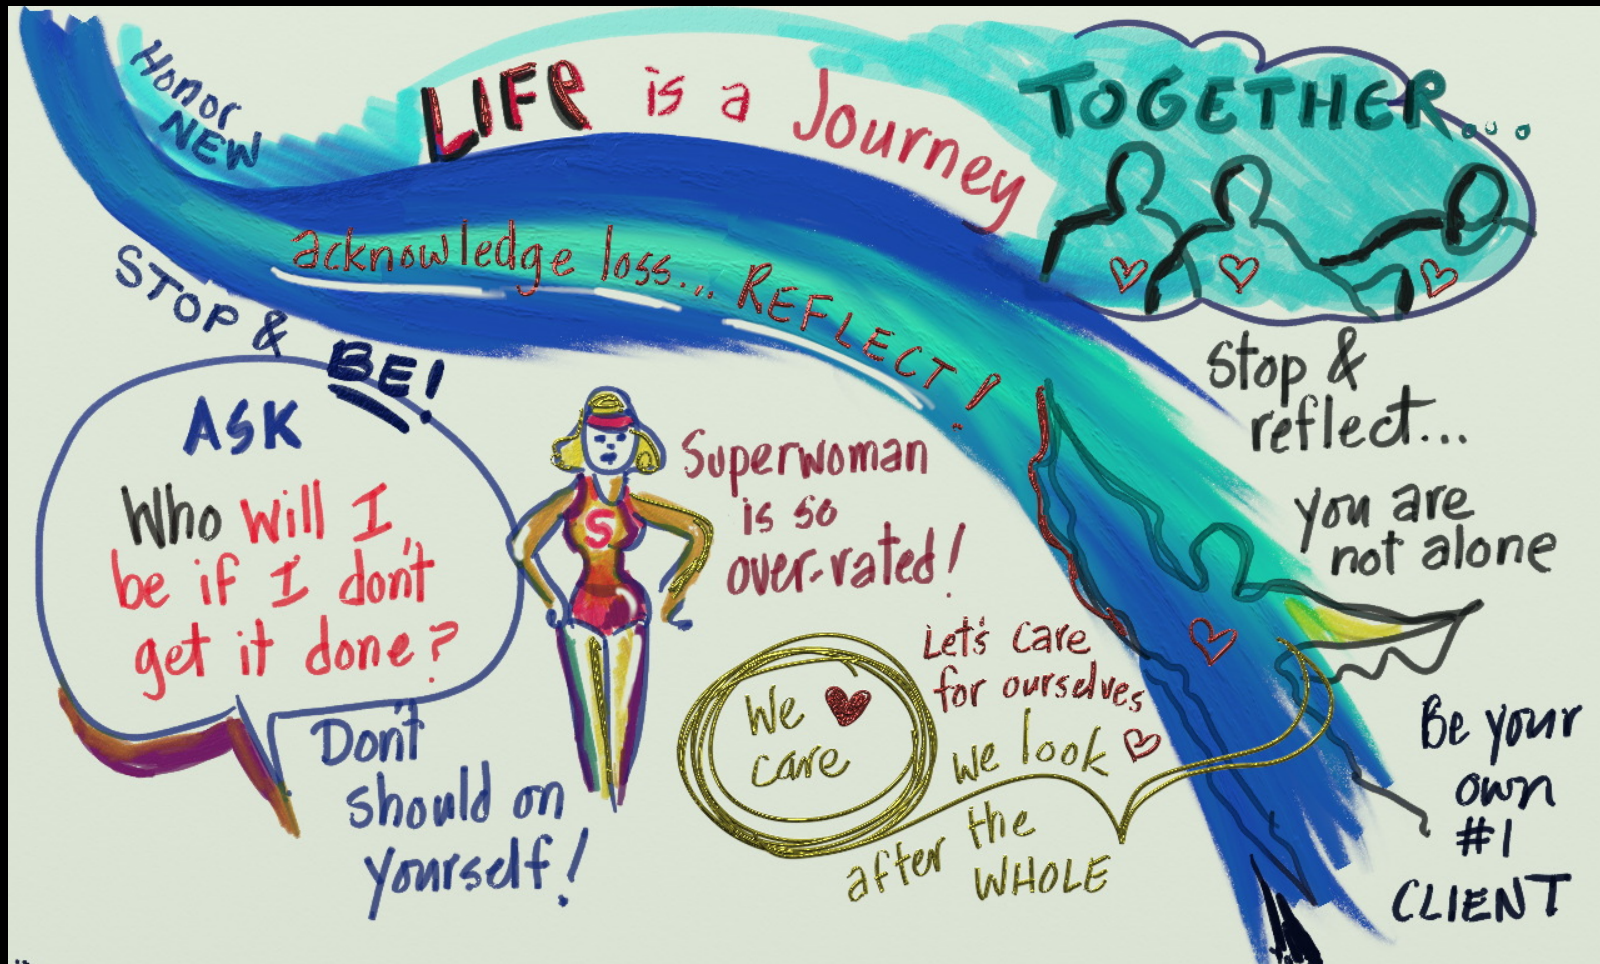 Honor
NEW
LIFE is a Journey
TOGETHER...
acknowledge loss... REFLECT!
STOP & BE!
ASK
Who will I
be if I don't
get it done?
Don't
should on
yourself!
S
Superwoman
is so
over-rated!
Stop &
reflect...
you are
not alone
We
care
Let's care
for ourselves
we look
after the
WHOLE
Be your
own
#1
CLIENT